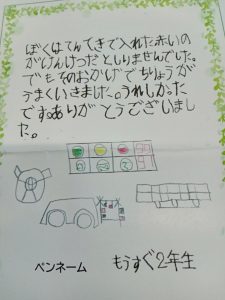 ぼくはてんてきで入れた赤いの
がけんけつだとしりませんでした。
でもそのおかげでちりょうが
うまくいきました。うれしかった
です。ありがとうございまし
た。
ペンネーム もうすぐ2年生